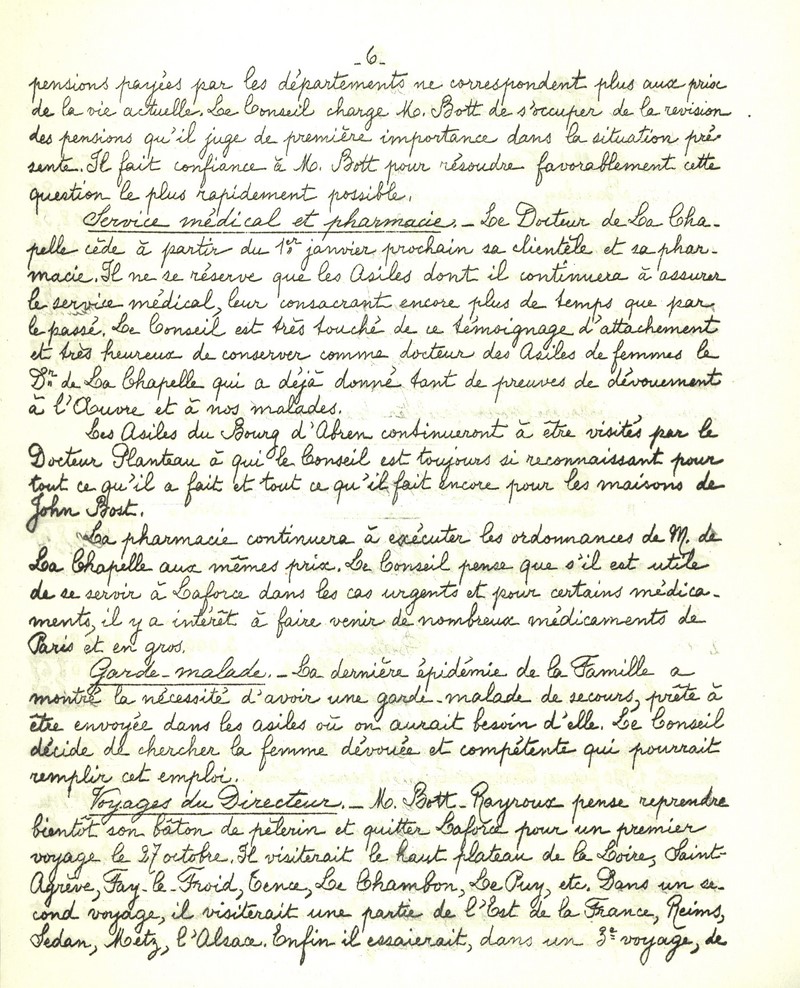 -6-
pensions payées par les départements ne correspondent plus aux prix
de la vie actuelle. Le Conseil charge M. Bott de s'occuper de la revision
des pensions qu'il juge de première importance dans la situation pré-
sente. Il fait confiance à M. Bott pour résoudre favorablement cette
question le plus rapidement possible.
Service médical et pharmacie. _ Le Docteur de La Cha-
pelle cède à partir du 1er janvier prochain sa clientèle et sa phar-
macie. Il ne se réserve que les Asiles dont il continuera à assurer
le service médical, leur consacrant encore plus de temps que par
le passé. Le Conseil est très touché de ce témoignage d'attachement
et très heureux de conserver comme docteur des Asiles de femmes le
Dr de La Chapelle qui a déjà donné tant de preuves de dévouement
à l'Œuvre et à nos malades.
Les Asiles du Bourg d'Abren continueront à être visités par le
Docteur Planteau à qui le Conseil est toujours si reconnaissant pour
tout ce qu'il a fait et tout ce qu'il fait encore pour les maisons de
John Bost.
La pharmacie continuera à exécuter les ordonnances de M. de
La Chapelle aux mêmes prix. Le Conseil pense que s'il est utile
de se servir à Laforce dans les cas urgents et pour certains médica-
ments, il y a intérêt à faire venir de nombreux médicaments de
Paris et en gros.
Garde-malade. _ La dernière épidémie de la Famille a
montré la nécessité d'avoir une garde-malade de secours, prête à
être envoyée dans les asiles où on aurait besoin d'elle. Le Conseil
décide de chercher la femme dévouée et compétente qui pourrait
remplir cet emploi.
Voyages du Directeur. _ M. Bott-Rayroux pense reprendre
bientôt son bâton de pèlerin et quitter Laforce pour un premier
voyage le 27 octobre. Il visiterait le haut plateau de la Loire, Saint-
Agrève, Fay-le-Froid, Tence, Le Chambon, Le Puy, etc. Dans un se-
cond voyage, il visiterait une partie de l'Est de la France, Reims,
Sedan, Metz, l'Alsace. Enfin il essaierait, dans un 3e voyage, de